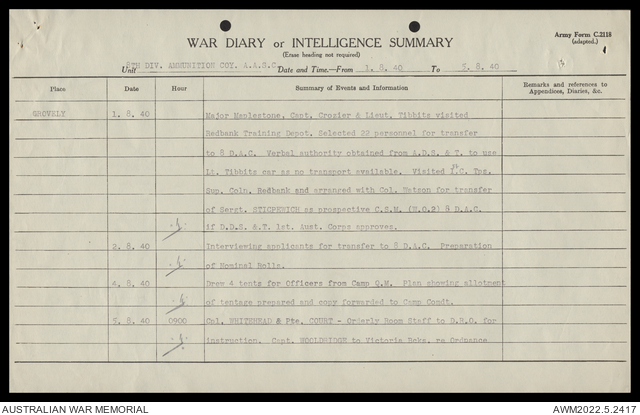 Army Form C.2118
(adapted.)
WAR DIARY or INTELLIGENCE SUMMARY
(Erase heading not required)
Unit 8TH DIV. AMMUNITION COY. A.A.S.C. Date and Time.—From 1. 8. 40 To 5. 8. 40
Place Date Hour Summary of Events and Information Remarks and references to Appendices, Diaries, &c.
GROVELY 1. 8. 40 Major Maplestone, Capt. Crozier & Lieut. Tibbits visited
Redbank Training Depot. Selected 22 personnel for transfer
to 8 D.A.C. Verbal authority obtained from A.D.S. & T. to use
Lt. Tibbits car as no transport available. Visited I.C. Tps.
Sup. Coln. Redbank and arranged with Col. Watson for transfer
of Sergt. STICPEWICH as prospective C.S.M. (W.O.2) 8 D.A.C.
if D.D.S. &.T. 1st. Aust. Corps approves.
2. 8. 40 Interviewing applicants for transfer to 8 D.A.C. Preparation
of Nominal Rolls.
4. 8. 40 Drew 4 tents for Officers from Camp Q.M. Plan showing allotment
of tentage prepared and copy forwarded to Camp Comdt.
5. 8. 40 0900 Cpl. WHITEHEAD & Pte. COURT - Orderly Room Staff to D.R.O. for
instruction. Capt. WOOLDRIDGE to Victoria Bks. re Ordnance
AUSTRALIAN WAR MEMORIAL
AWM2022.5.2417